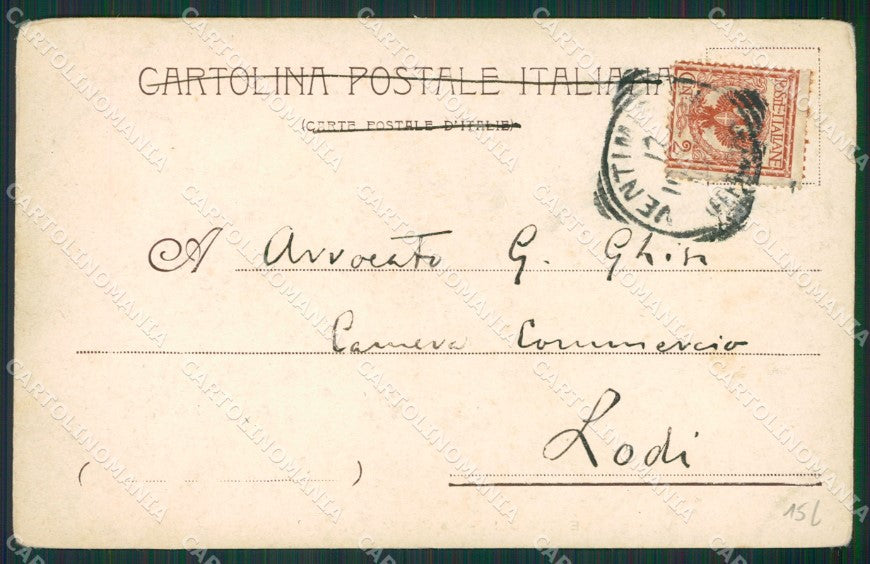 CARTOLINA POSTALE ITALIANA
(CARTE POSTALE D'ITALIE)
POSTE ITALIANE
VENTIM
12
A Avvocato G. Ghisi
Camera Commercio
Lodi
( )
15L
CARTOLINOMANIA